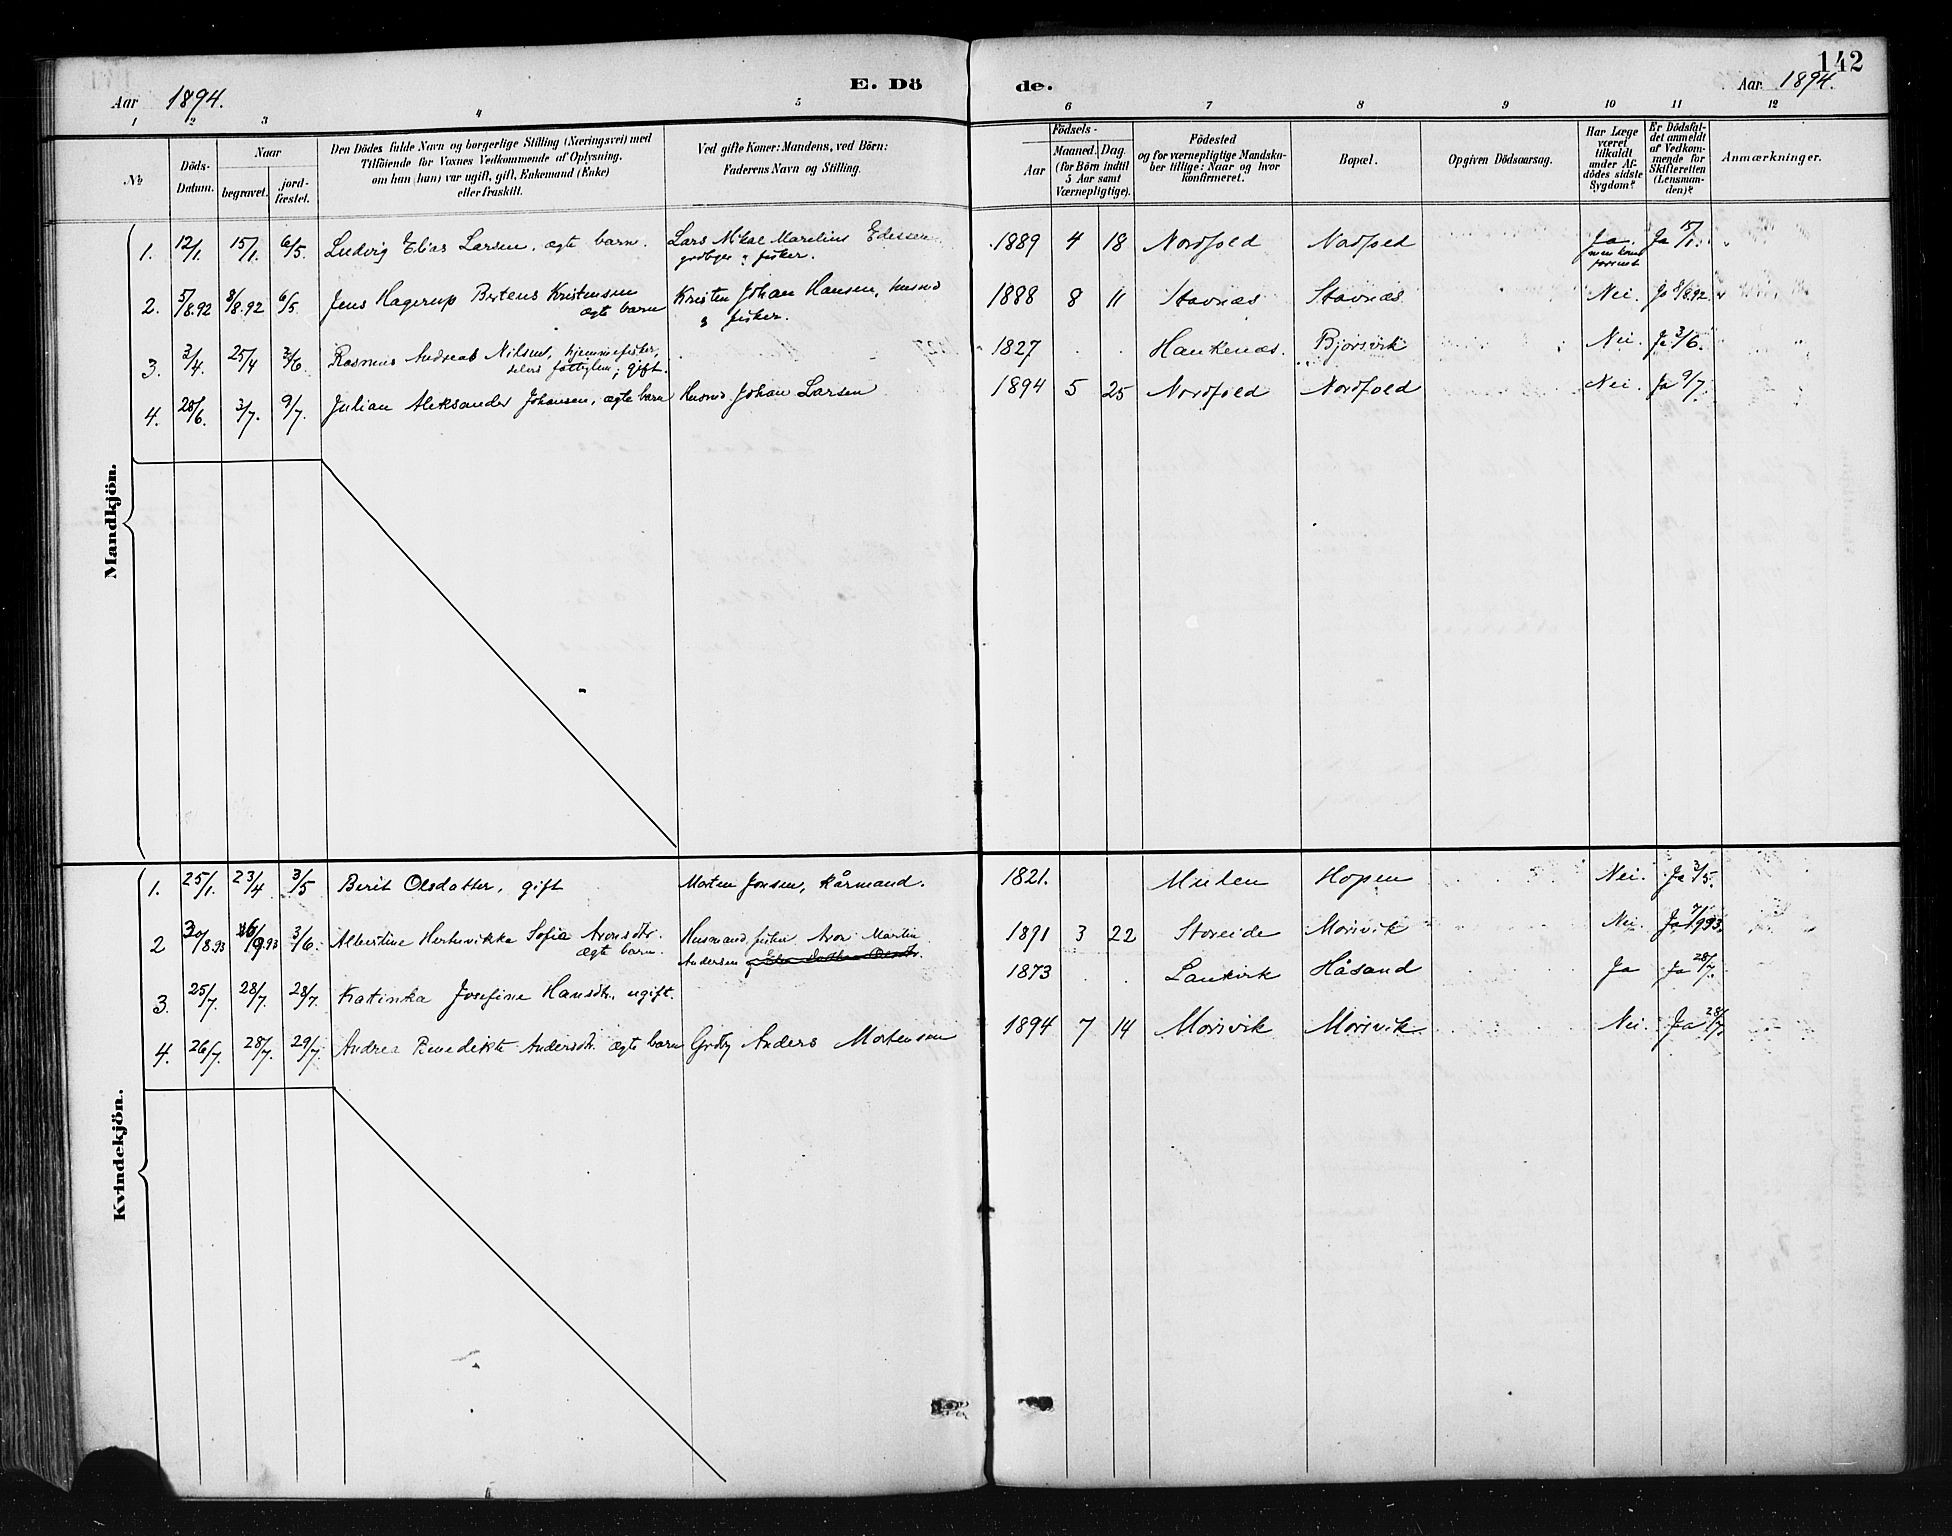 142
Aar 1894. E. Dö de. Aar 1894.
1 2 3 4 5 6 7 8 9 10 11 12
No
Döds-Datum.
Naar
begravet.
jord-fæstet.
Den Dödes fulde Navn og borgerlige Stilling (Næringsvei) med
Tilföiende for Voxnes Vedkommende af Oplysning,
om han (hun) var ugift, gift, Enkemand (Enke)
eller fraskilt.
Ved gifte Koner: Mandens, ved Börn:
Faderens Navn og Stilling.
Födsels-
Aar
Maaned. Dag.
(for Börn indtil
5 Aar samt
Værnepligtige).
Födested
og for værnepligtige Mandska-
ber tillige: Naar og hvor
konfirmeret.
Bopæl.
Opgiven Dödsaarsag.
Har Læge
været
tilkaldt
under Af-
dödes sidste
Sygdom?
Er Dödsfal-
det anmeldt
af Vedkom-
mende for
Skifteretten
(Lensman-
den)?
Anmærkninger.
Mandkjön.
1. 12/1. 15/1. 6/5. Ludvig Elias Larsen, ægte barn. Lars Mikal Marelius Edissen 1889 4 18 Nordfold Nordfold Ja. Ja 15/1.
fisker.
2. 5/8.92 8/8.92 6/5. Jens Hagerup Berteus Kristensen Kristen Johan Hansen, husmd 1888 8 11 Stavnæs Stavnæs Nei. Ja 8/8.92
ægte barn & fisker.
3. 3/4. 25/4 3/6. Rasmus Andreas Nilsen, hjemmefisker, 1827 . . Haukenæs. Bjørsvik Nei. Ja 3/6.
gift.
4. 28/6. 3/7. 9/7. Julian Aleksander Johansen, ægte barn Husmd. Johan Larsen 1894 5 25 Nordfold Nordfold Nei. Ja 9/7.
Kvindekjön.
1. 25/1. 23/4 3/5 Berit Olsdatter, gift Morten Jonsen, kårmand. 1821. Mulen Hopen Nei. Ja 3/5.
2 30/8.93 3/6. Albertine Sofie Aronsdtr. Husmand, fisker Aron Martin 1891 3 22 Storeide Morsvik Nei. Ja
ægte barn. Andersen
3. 25/7. 28/7. 28/7. Katinka Josefine Hansdtr. ugift. 1873 . . Håsand Ja Ja 28/7.
4. 26/7. 28/7. 29/7. Andrea Benedikte Andersdtr. ægte barn Grdbr Anders Mortensen 1894 7 14 Morsvik Morsvik Nei. Ja 28/7.